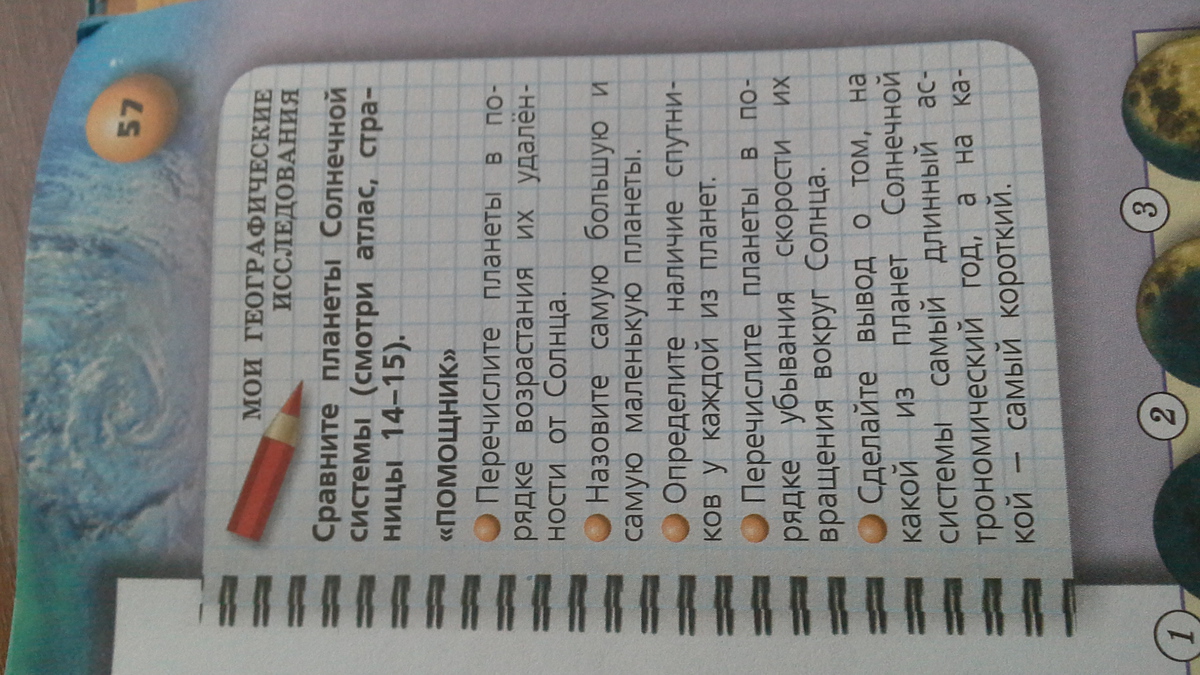 57
МОИ ГЕОГРАФИЧЕСКИЕ
ИССЛЕДОВАНИЯ
Сравните планеты Солнечной
системы (смотри атлас, стра-
ницы 14–15).
«ПОМОЩНИК»
Перечислите планеты в по-
рядке возрастания их удалён-
ности от Солнца.
Назовите самую большую и
самую маленькую планеты.
Определите наличие спутни-
ков у каждой из планет.
Перечислите планеты в по-
рядке убывания скорости их
вращения вокруг Солнца.
Сделайте вывод о том, на
какой из планет Солнечной
системы самый длинный ас-
трономический год, а на ка-
кой — самый короткий.
1
2
3